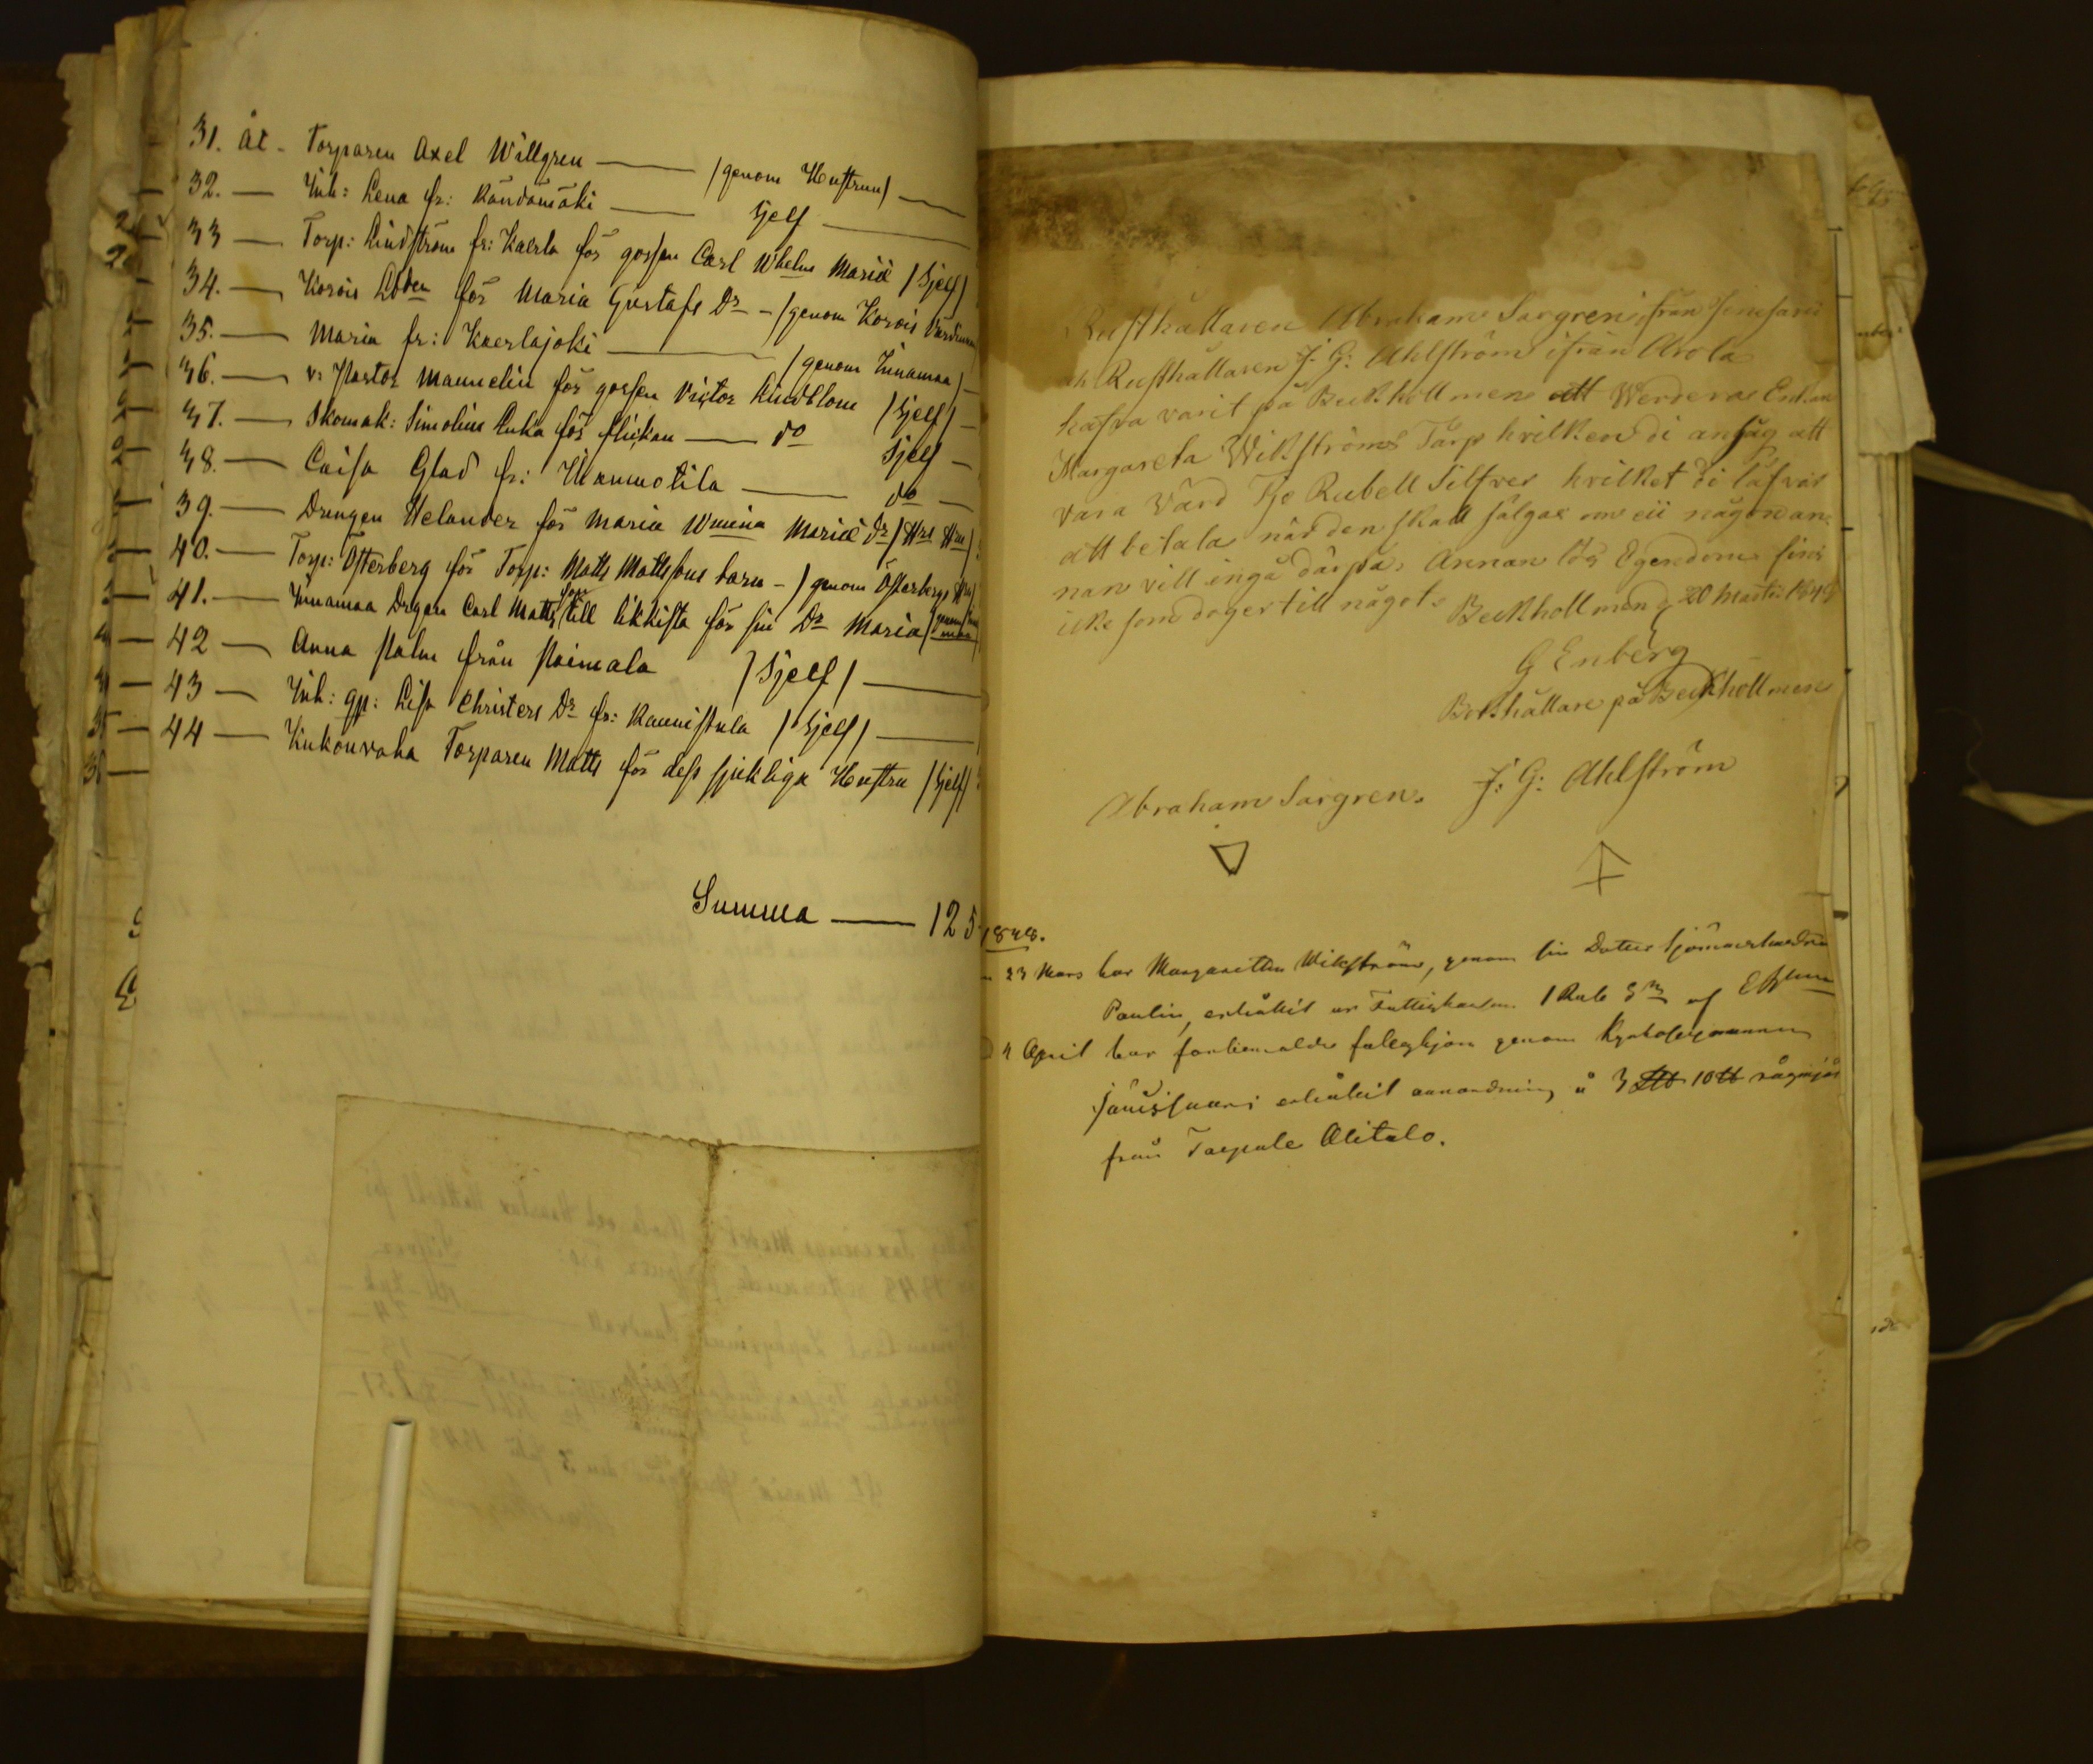 31. åt - Torparen Axel Willgren — /genom Hustrun/ —
32. — Inh: Lena fr: Rändämäki — Sjelf —
33 — Torp: Lindström fr: Kaerla för gossen Carl Whelm Mariæ /Sjelf/
34. — Korois Åboen för Maria Gustafs Dr - /genom Korois Värdinnan
35. — Maria fr: Kaerlajoki — /genom Innamaa/ —
36. — v: Pastor Mannelin för gossen Victor Lindblom /Sjelf/ —
37. — Skomak: Simolins Enka för flickan — do Sjelf —
38. — Caisa Glad fr: Hammotila — do —
39. — Drengen Helander för Maria Wmina Mariæ Dr /Hns Hru/
40. — Torp: Österberg för Torp: Matts Mattssons barn - /genom Österbergs Hru/
41. — Innamaa Drgen Carl Matts son till likkista för sin Dr Maria /genom Innamaa/
42 — Anna Malm från Paimala /Sjelf/ —
43 — Inh: gp: Lisa Christers Dr fr: Raunistula /Sjelf/ —
44 — Kukonvaha Torparen Matts för dess sjukliga Hustru /Sjelf/
Summa — 125
Rusthållaren Abraham Sargren ifrån
och Rusthållaren J. G: Ahlström ifrån Arola
hafva varit på Beckhollmen att Werdera Enkan
Margareta Wikströms Tårp hvilken di ansåg att
vara Värd Tje Rubell Silfver hvilket di
att betala når den skall sålgas om eii någon an-
nan vill ingå dårpå, Annan lös Egendom fins
icke som doger till något. Beckhollmen d 20 Martii 1848
G Enberg
Bokhållare på Beckhollmen
Abraham Sargren. J: G: Ahlström
1848.
23 Mars har Margaretha Wikström, genom sin Dotter Sjömanshustrun
Paulin, erhållit ur Fattigkassan 1 Rub S m af
4 April har förbemälde genom Kyrkoveymannen
Jänissaari erhållit anordning å 3 10 ℔ rågmjöl
från Alitalo.